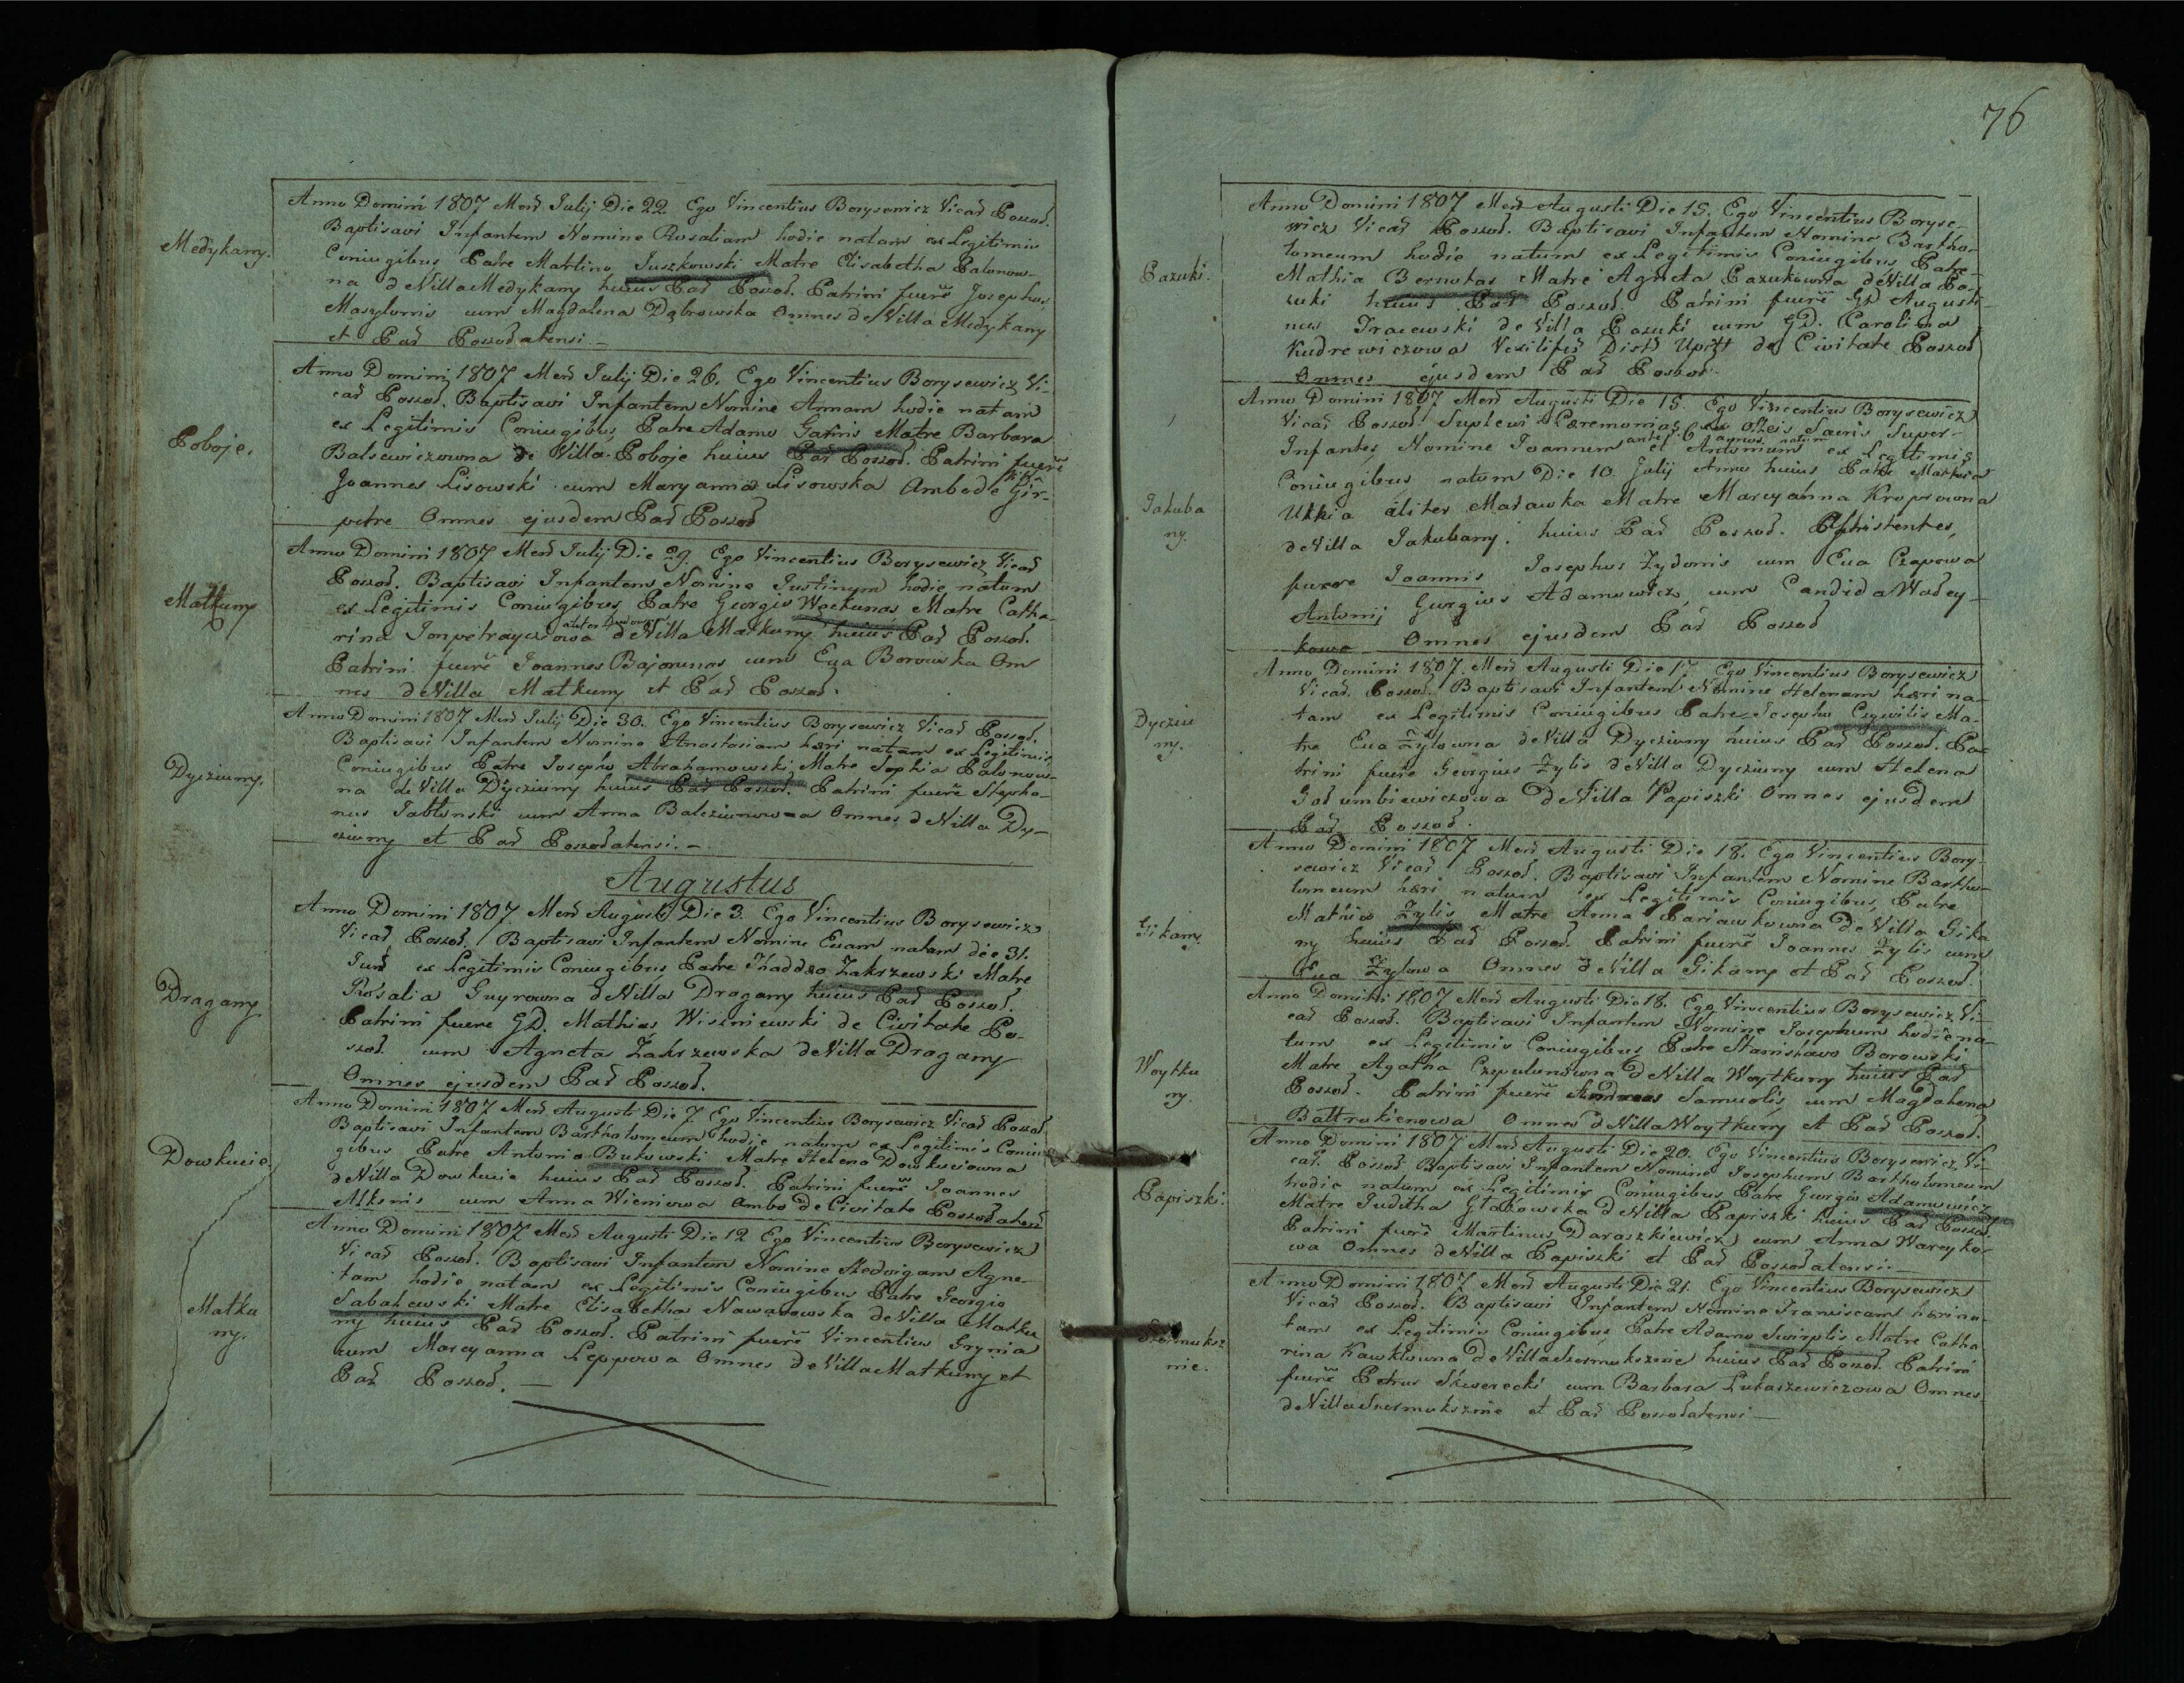 Medykany.
Anno Domini 1807 Mens̃ Julij Die 22 Ego Vincentius Borysewicz Vicar̃ Poszoł.
Baptisavi Infantem Nomine Rosaliam hodie natam ex Legitimis
Coniugibus Patre Martino Juszkowski Matre Elisabetha Palonow-
na de Villa Medykany huius Par̃ Poszoł. Patrini fuere Josephus
cum Magdalena Dąbrowska Omnes de Villa Medykany
et Par̃ Poszołatensi. –
Poboje.
Anno Domini 1807 Mens̃ Julij Die 26. Ego Vincentius Borysewicz Vi-
car̃ Poszoł. Baptisavi Infantem Nomine Annam hodie natam
ex Legitimis Coniugibus Patre Adamo Matre Barbara
Balsewiczowna de Villa Poboje huius Par̃ Poszoł. Patrini fuere
Joannes Lisowski cum Maryanna Lisowska Ambo de Gir-
Omnes ejusdem Par̃ Poszoł
Matkuny
Anno Domini 1807 Mens̃ Julij Die 29. Ego Vincentius Borysewicz Vicar̃
Poszoł. Baptisavi Infantem Nomine Justinum hodie natum
ex Legitimis Coniugibus Patre Georgio Wackunas Matre Catha-
rina de Villa Matkuny huius Par̃ Poszoł.
Patrini fuere Joannes Bajorunas cum Eva Borowska Om
nes de Villa Matkuny et Par̃ Poszoł.
Dyciuny.
Anno Domini 1807 Mens̃ Julij Die 30. Ego Vincentius Borysewicz Vicar̃ Poszoł.
Baptisavi Infantem Nomine Anastasiam hæri natam ex Legitimis
Coniugibus Patre Josepho Abrahamowski Matre Sophia Palonow-
na de Villa Dyciuny huius Par̃ Poszoł. Patrini fuere Stepha-
nus Jabłonski cum Anna Balciunowa Omnes de Villa Dy-
ciuny et Par̃ Poszołatensi. –
Augustus
Dragany
Anno Domini 1807 Mens̃ Augusti Die 3. Ego Vincentius Borysewicz
Vicar̃ Poszoł. Baptisavi Infantem Nomine Evam natam die 31.
ex Legitimis Coniugibus Patre Thaddæo Zakrzewski Matre
Rosalia Guyrowna de Villa Dragany huius Par̃ Poszoł.
Patrini fuere GD. Mathias Wiszniewski de Civitate Po-
szoł cum Agneta Zakrzewska de Villa Dragany
Omnes ejusdem Par̃ Poszoł.
Dowkucie
Anno Domini 1807 Mens̃ Augusti Die 7 Ego Vincentius Borysewicz Vicar̃ Poszoł
Baptisavi Infantem Bartholomeum hodie natum ex Legitimis Coniu-
gibus Patre Antonio Bukowski Matre Helena Dowkuciowna
de Villa Dowkucie huius Par̃ Poszoł. Patrini fuere Joannes
Alksnis cum Anna Wieniowa Ambo de Civitate Poszołatensi
Matku
ny.
Anno Domini 1807 Mens̃ Augusti Die 12 Ego Vincentius Borysewicz
Vicar̃ Poszoł. Baptisavi Infantem Nomine Hedvigam Agne-
tam hodie natam ex Legitimis Coniugibus Patre Georgio
Sabalewski Matre Elisabetha de Villa Matku
ny huius Par̃ Poszoł. Patrini fuere Vincentius Grynia
cum Maryanna Leppowa Omnes de Villa Matkuny et
Par̃ Poszoł. –
76
Pazuki.
Anno Domini 1807 Mens̃ Augusti Die 15. Ego Vincentius Boryse-
wicz Vicar̃ Poszoł. Baptisavi Infantem Nomine Bartho-
lomeum hodie natum ex Legitimis Coniugibus Patre
Mathia Bernotas Matre Agneta Pazukowna de Villa Pa-
zuki huius Par̃ Poszoł. Patrini fuere GD Augusti-
nus de Villa Pazuki cum GD. Carolina
Kudrewiczowa Distr̃ Upit de Civitate Poszoł
Omnes ejusdem Par̃ Poszoł.
Jakuba
ny.
Anno Domini 1807 Mens̃ Augusti Die 15 Ego Vincentius Borysewicz
Vicar̃ Poszoł Suplevi Cæremonias Sacris Super
Infantes Nomine Joannem et Antonium ex Legitimis
Coniugibus natum Die 10 Julij Anno huius Patre
aliter Matre Maryanna
de Villa Jakubany. huius Par̃ Poszoł. Assistentes
fuere Joannis Josephus Zydonis cum Eva
Antonij Georgius Adamowicz cum Candida
Omnes ejusdem Par̃ Poszoł
Dyciu
ny.
Anno Domini 1807 Mens̃ Augusti Die 17 Ego Vincentius Borysewicz
Vicar̃ Poszoł. Baptisavi Infantem Nomine Helenam hæri na-
tam ex Legitimis Coniugibus Patre Josepho Ma-
tre Eva Żylowna de Villa Dyciuny huius Par̃ Poszoł. Pa
trini fuere Georgius Żylis de Villa Dyciuny cum Helena
Gołumbiewiczowa de Villa Papiszki Omnes ejusdem
Par̃ Poszoł.
Gikany
Anno Domini 1807 Mens̃ Augusti Die 18. Ego Vincentius Bory-
sewicz Vicar̃ Poszoł. Baptisavi Infantem Nomine Bartho-
lomeum hæri natum ex Legitimis Coniugibus, Patre
Mathia Żylis Matre Anna de Villa Gika
ny huius Par̃ Poszoł. Patrini fuere Joannes Żylis cum
Eva Żylowa Omnes de Villa Gikany et Par̃ Poszoł.
Woytku
ny.
Anno Domini 1807 Mens̃ Augusti Die 18. Ego Vincentius Borysewicz Vi-
car̃ Poszoł. Baptisavi Infantem Nomine Josephum hodie na-
tum ex Legitimis Coniugibus Patre Stanislavo Borowski
Matre Agatha Czepulunowna de Villa Woytkuny huius Par̃
Poszoł. Patrini fuere Andreas Samuolis cum Magdalena
Omnes de Villa Woytkuny et Par̃ Poszoł.
Papiszki.
Anno Domini 1807 Mens̃ Augusti Die 20. Ego Vincentius Borysewicz Vi-
car̃. Poszoł Baptisavi Infantem Nomine Josephum Bartholomeum
hodie natum ex Legitimis Coniugibus Patre Georgio Adamowicz
Matre Juditha de Villa Papiszki huius Par̃ Poszoł
Patrini fuere Martinus Daraszkiewicz cum Anna Wareyko-
wa Omnes de Villa Papiszki et Par̃ Poszołatensi. –
Anno Domini 1807 Mens̃ Augusti Die 21. Ego Vincentius Borysewicz
Vicar̃ Poszoł. Baptisavi Infantem Nomine Franciscam hæri na-
tam ex Legitimis Coniugibus Patre Adamo Swirplis Matre Catha
rina de Villa huius Par̃ Poszoł. Patrini
fuere Petrus cum Barbara Lukaszewiczowa Omnes
de Villa et Par̃ Poszołatensi –